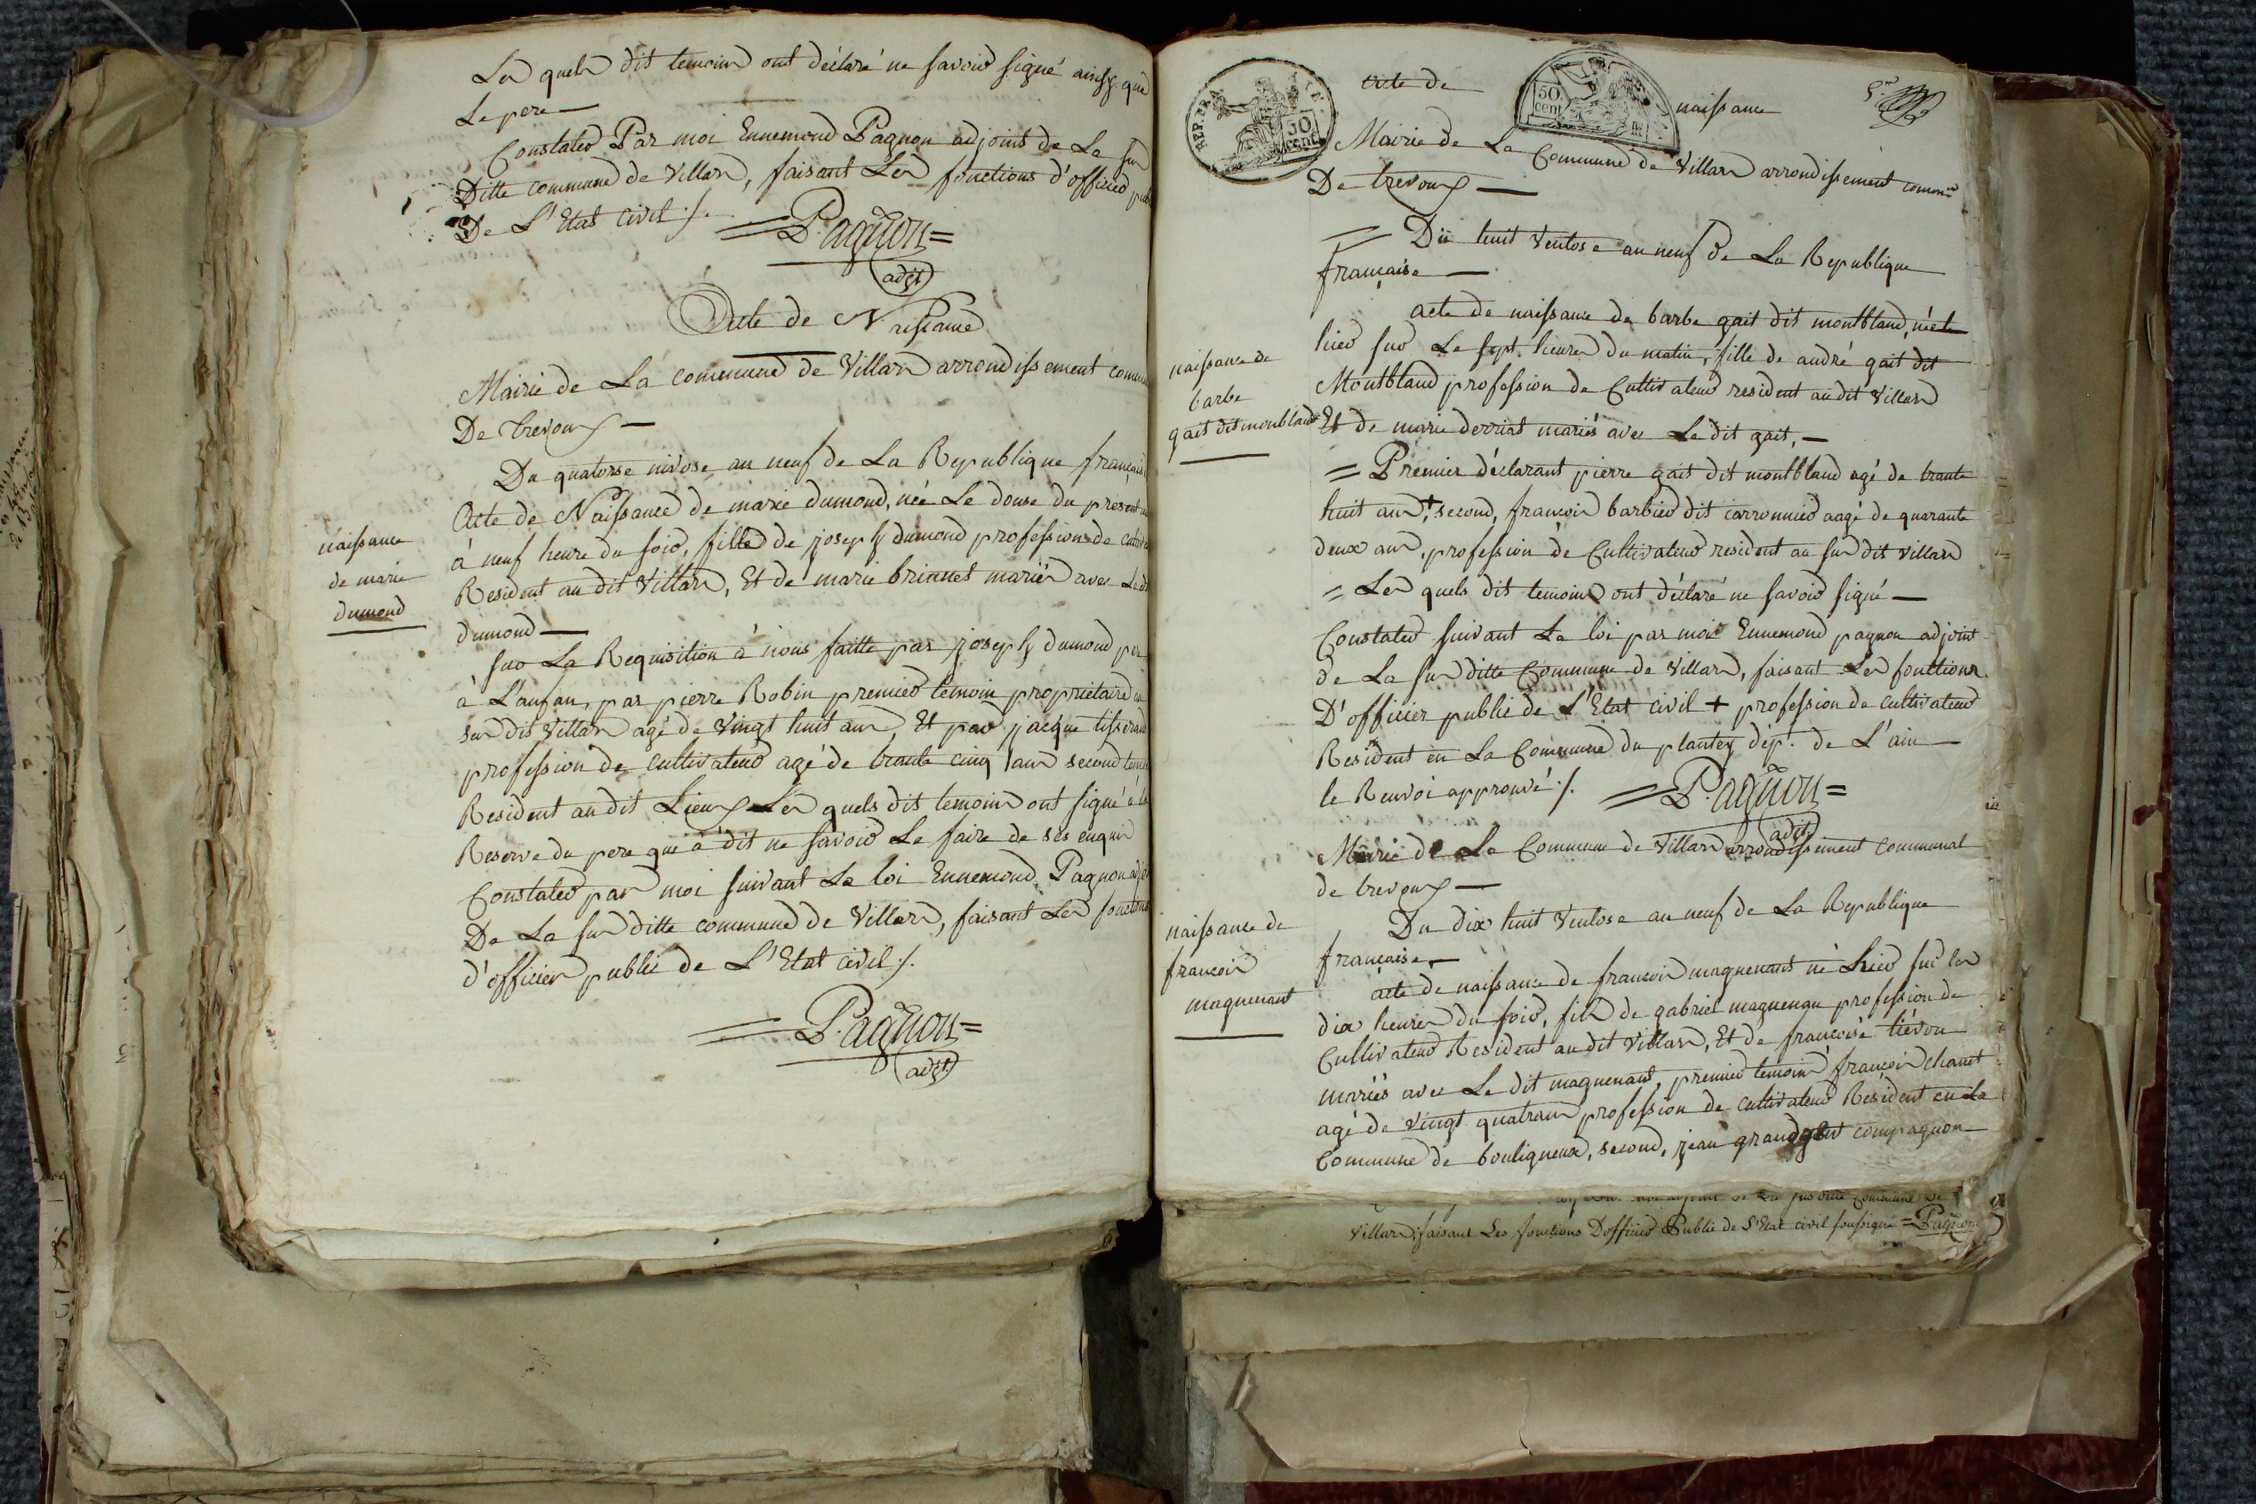 Les quels dit temoins ont déclaré ne savoir signé ainsy que
Le pere
Constater Par moi Ennemond Pagnon adjoint de La sus
Ditte commune de Villars, faisant Les fonctions d'officier
De L'Etat civil ./.
= Pagnon =
adjt
Acte de Naissance
Mairie de La commune de Villars arrondissement
De trevoux
Du quatorse nivose an neuf de La Republique française
naissance
de marie
dumond
Acte de Naissance de marie dumond, née Le douse du present
à neuf heure du soir, fille de joseph dumond profession de
Resident au dit Villars, Et de marie brinnet mariés avec Le
dumond
sur La Requisition à nous faitte par joseph dumond
à L'anfan, par pierre Robin premier temoin proprietaire
sus dit Villars agé de vingt huit ans, Et par jacque tisserand
profession de cultivateur agé de trante cinq ans second
Resident au dit Lieux Les quels dit temoins ont signé à
Reserve du pere que a dit ne savoir Le faire de ses enquis
Constater par moi suivant La loi Ennemond Pagnon
De La sus ditte commune de Villars, faisant Les fonctions
d'officier public de L'Etat civil ./.
= Pagnon =
adjt
acte de naissance
REP. FRA.
50 cent
50 cent
Mairie de La Commune de Villars arrondissement
De trevoux
= Du huit Ventose an neuf de La Republique
française
naissance de
barbe
gait dit montbland
acte de naissance de barbe gait dit montbland, née
hier sur Le sept heures du matin, fille de andré gait dit
Montbland profession de Cultivateur resident audit Villars
Et de marie derriat mariés avec Le dit gait,
= Premier déclarant pierre gait dit montbland agé de trante
huit ans +, second, francois barbier dit carronnier aagé de quarante
deux ans, profession de Cultivateur resident au sus dit Villars
= Les quels dit temoins ont déclaré ne savoir signé
Constater suivant La loi par moi Ennemond pagnon adjoint
de La sus ditte Commune de Villars, faisant Les fonctions
D'officier public de L'Etat civil + profession de cultivateur
Resident en La Commune du plantey dép.t de L'ain
le Renvoi approuvé ./.
= Pagnon =
adjt
Mairie de La Commune de Villars arrondissement communal
de trevoux
Du dix huit Ventose an neuf de La Republique
française
naissance de
francois
maguenant
acte de naissance de francois maguenant né hier sur les
dix heures du soir, fils de gabriel maguenan profession de
Cultivateur Resident au dit Villars, Et de françoise
mariés avec Le dit maguenant, premier temoin francois chanet
agé de vingt quatrans profession de cultivateur Resident en La
Commune de bouligneux, second, jean compagnon
Villars, faisant Les fonctions D'officier Public de L'Etat civil soussigné = Pagnon